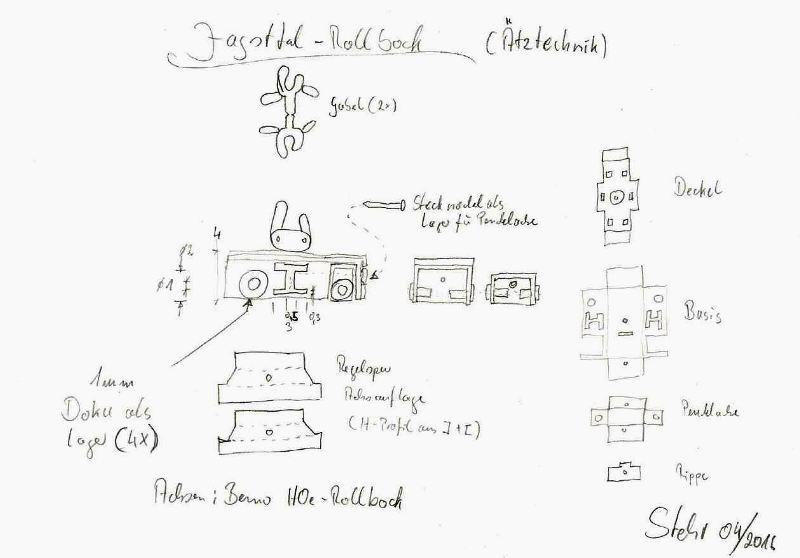 Jagsttal-Rollbock (Ätztechnik)
Gabel (2x)
Stecknadel als
Lager für Pendelachse
Deckel
4
ø2
ø1
0,5
3
0,3
Basis
1mm
Doku als
Lager (4x)
Regelspur
Achsauflage
(H-Profil aus I+I)
Pendelachse
Rippe
Achsen: Bemo H0e-Rollbock
Stehr 04/2016